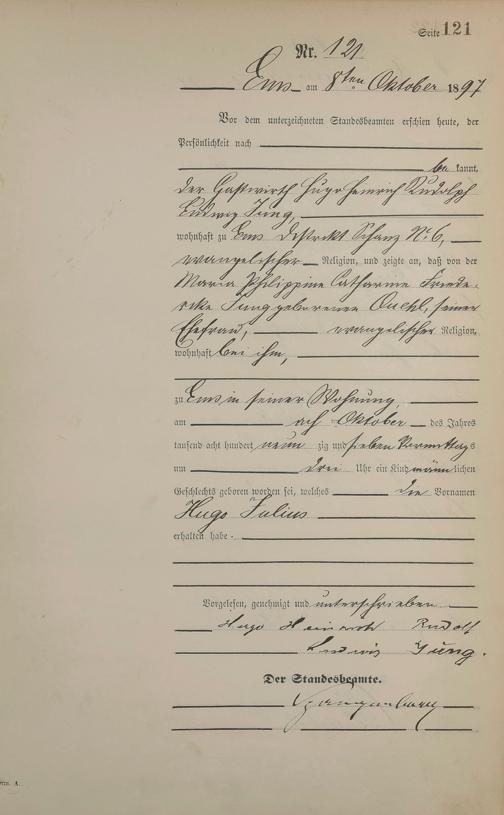 Seite 121
Nr. 121.
Ems am 8ten Oktober 1897
Vor dem unterzeichneten Standesbeamten erschien heute, der
Persönlichkeit nach
be kannt,
der Gastwirth Hugo Heinrich Rudolph
Ludwig Jung,
wohnhaft zu Ems Distrikt Schanz No 6,
evangelischer Religion, und zeigte an, daß von der
Maria Philippine Catharine Friede-
rike Jung geborenen seiner
Ehefrau, evangelischer Religion,
wohnhaft bei ihm,
zu Ems in seiner Wohnung,
am Oktober des Jahres
tausend acht hundert neun zig und sieben Vormittags
um drei Uhr ein Kind männlichen
Geschlechts geboren worden sei, welches die Vornamen
Hugo Julius
erhalten habe.
Vorgelesen, genehmigt und unterschrieben
Hugo Heinrich Rudolf
Ludwig Jung.
Der Standesbeamte.